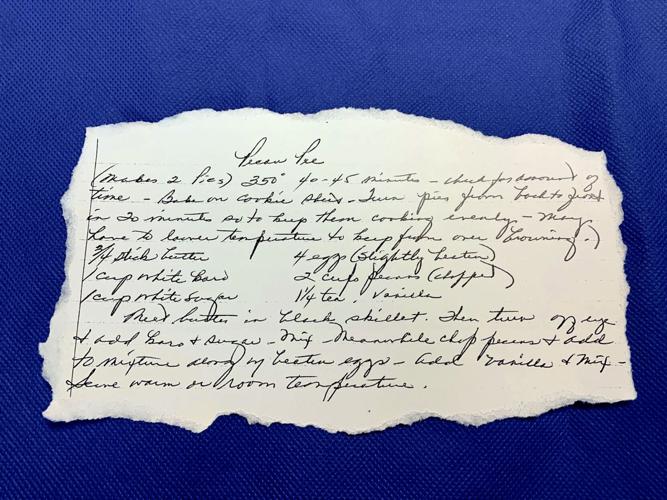 Pecan Pie
(Makes 2 Pies) 350° 40-45 minutes - check for amount of
time - Bake on cookie sheet - Turn pies from back to front
in 20 minutes so to keep them cooking evenly - May
have to lower temperature to keep from over browning.)
3/4 stick butter 4 eggs (slightly beaten)
1 cup white Karo 2 cups pecans (chopped)
1 cup white sugar 1 1/4 tea. Vanilla
Melt butter in black skillet. Then turn off eye
& add Karo & sugar - Mix - Meanwhile chop pecans & add
to mixture along w/ beaten eggs - add Vanilla & Mix -
Serve warm or room temperature.